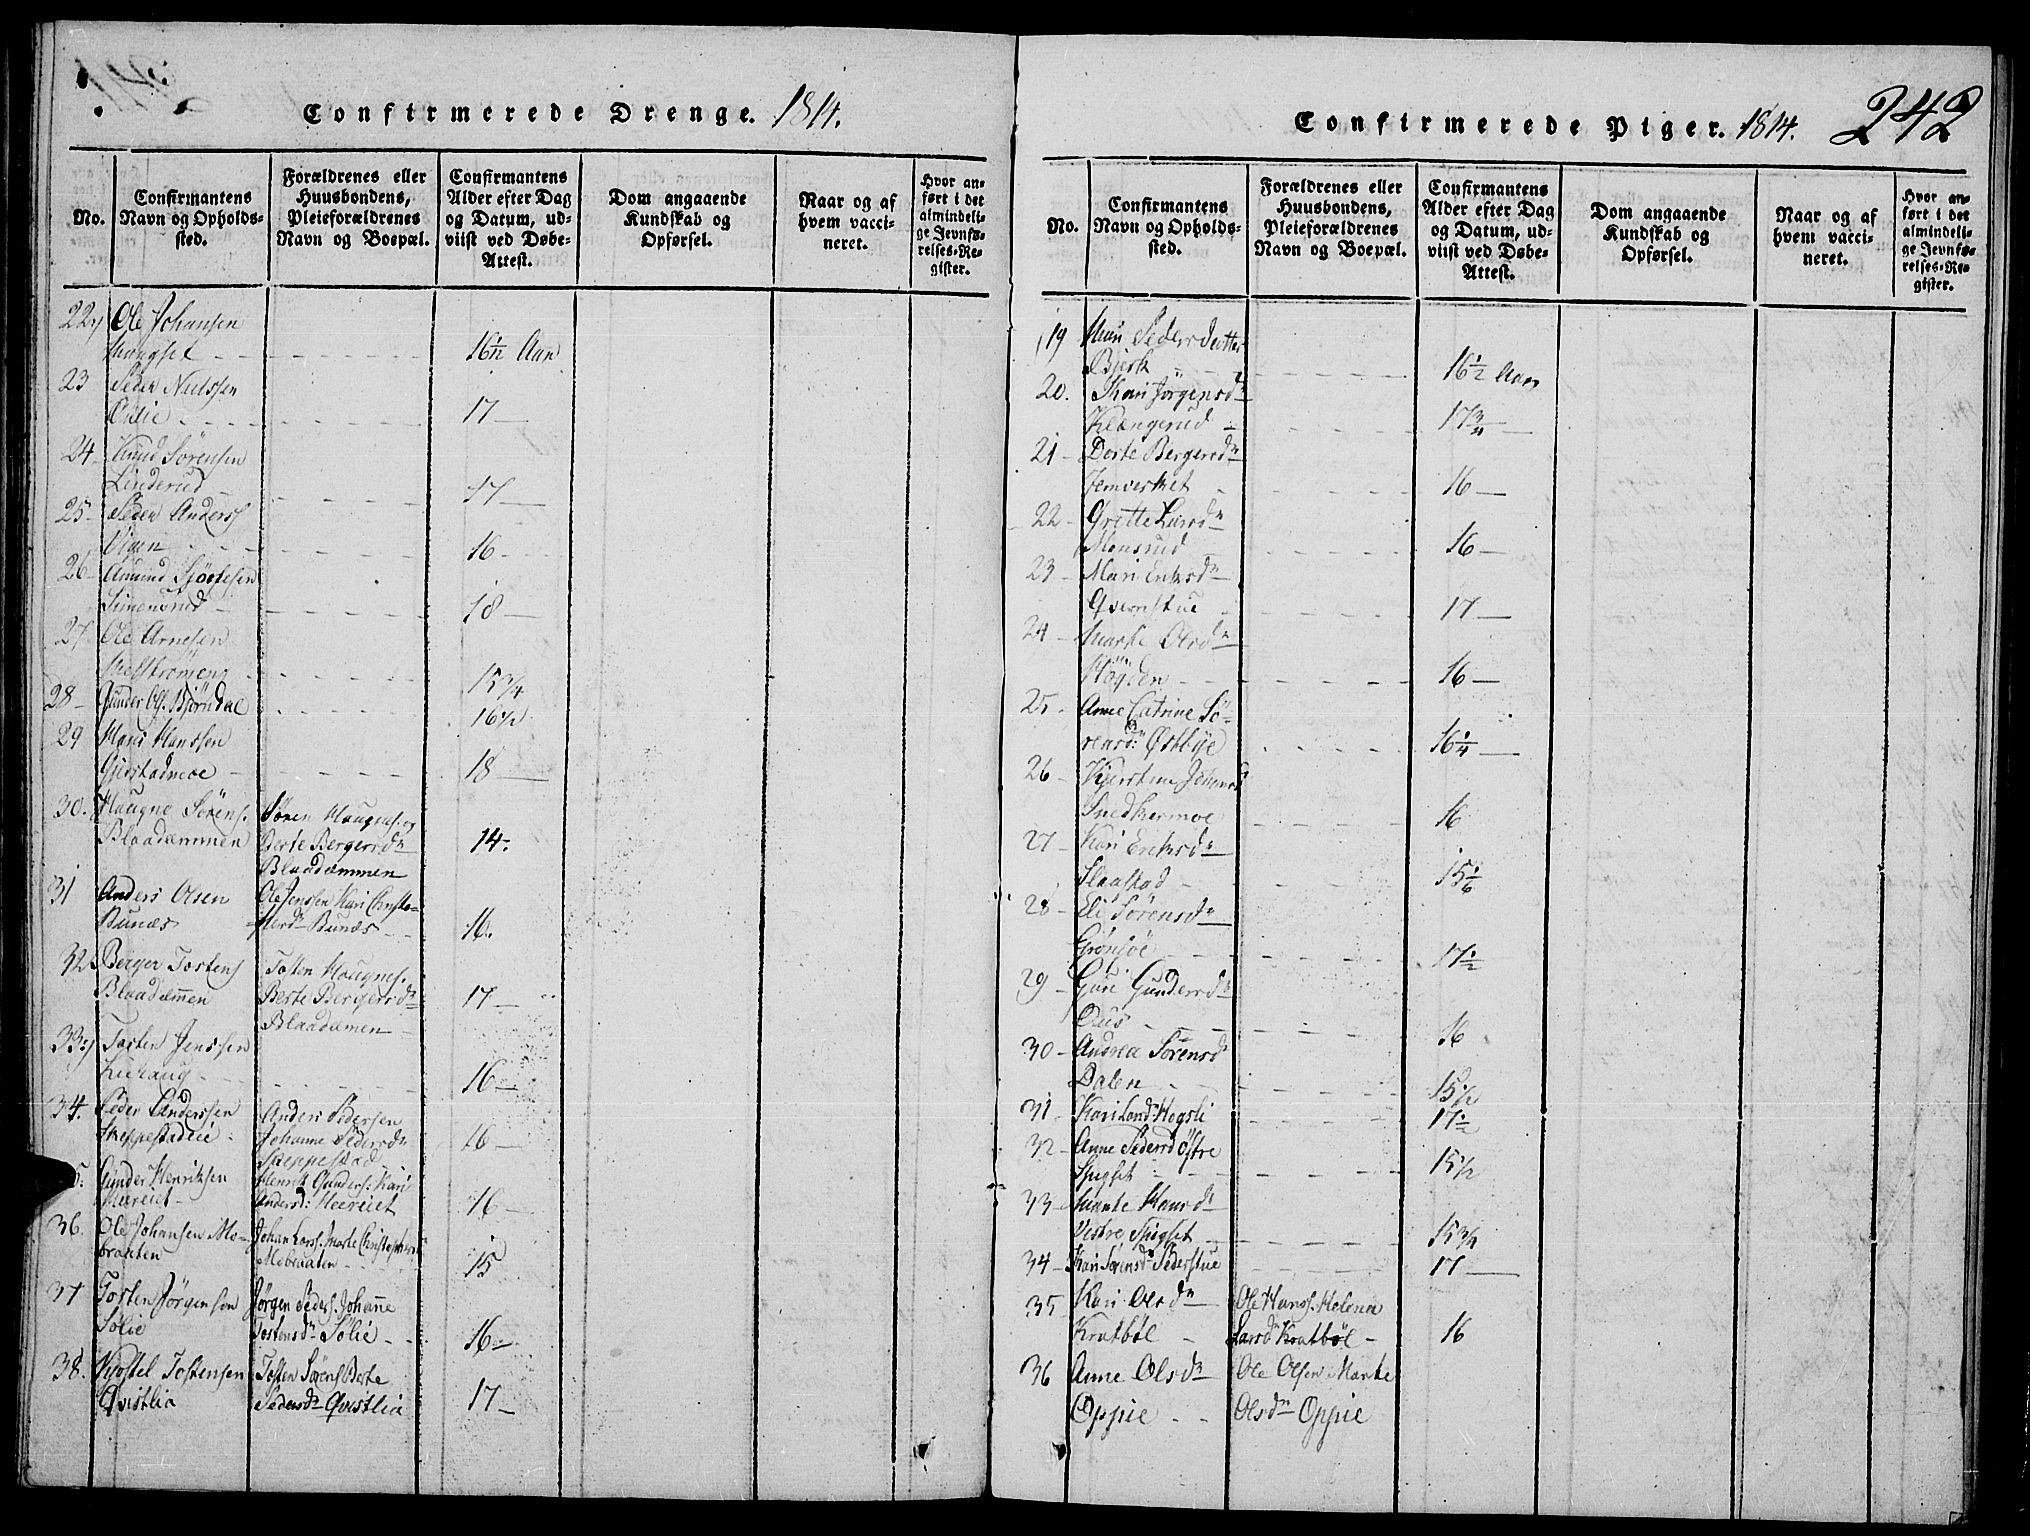 Confirmerede Drenge. 1814.
No.
Confirmantens
Navn og Opholds-
sted.
Forældrenes eller
Huusbondens,
Pleieforældrenes
Navn og Boepæl.
Confirmantens
Alder efter Dag
og Datum, ud-
viist ved Døbe-
Attest.
Dom angaaende
Kundskab og
Opførsel.
Naar og af
hvem vacci-
neret.
Hvor an-
ført i det
almindeli-
ge Jevnfø-
relses-Re-
gister.
22, Ole Johansen
Haugset 16 1/2 Aar
23 Peder Nielssen
17
24 Knud Sörensen
Linderud 17
25 Peder Anderss
Vigen 16
26 Amund
Simensrud 18
27 Ole Arnesen
15 3/4
28 Gunder Ols. Bjørndal 16 1/2
29 Hans Hanssen
Gjerstadmoe 18
30. Haugne Sörens. Sören Haugnes. og
Blaadammen Berte Bergersdr 14.
Blaadæmmen
31 Anders Olsen Ole Jenssen Kari Christo-
Bunæs Bunæs 16.
32. Berger Tostens Tosten Haugnes.
Blaadæmen Berte Bergersdr 17
Blaadæmen
33, Tosten Jenssen
16
34. Peder Anderssen Anders Pedersen
Skeppestadeie Johanne Pedersdr 16
Skeppestad
5. Gunder Henriksen Henrik Gunders: Kari
Heereiet Andersd: Heereiet 16
36. Ole Johansen Mo- Johan Larss. Marte
braaten Mobraaten 15
37 Tosten Jørgensen Jørgen Peders. Johanne
Sølie Tostensdr Sølie 16
38. Kjostel Tostensen Tosten Sörens Berte
Qvistlia Pedersdr Qvistlia 17
Confirmerede Piger. 1814. 242
No.
Confirmantens
Navn og Opholds-
sted.
Forældrenes eller
Huusbondens,
Pleieforældrenes
Navn og Boepæl.
Confirmantens
Alder efter Dag
og Datum, ud-
viist ved Døbe-
Attest.
Dom angaaende
Kundskab og
Opførsel.
Naar og af
hvem vacci-
neret.
Hvor an-
ført i det
almindeli-
ge Jevnfø-
relses-Re-
gister.
19 Mari Pedersdotter
Bjerk 16 1/2 Aar
20. Kari Jörgensdr
Klængerud 17 3/4
21 Dorte Bergersdr
Jernverket 16
22 Grette Larsdr
Monsrud 16
23 Mari Eriksdr
Qvernstue 17
24 Marte Olsdr
Höyden 16
25 Anne Catrine Sö-
rensd: Østbye 16 1/4
26 Kjerstine
Snedkermoe 16
27 Kari Eriksdr
Slaastad 15 1/6
28 Eli Sörensdr
Grönsöe 17 1/2
29 Guri Gundersdr
16
30 Andrea Sörensd
Dalen 15 1/2
31 Kari Hogsli 17 1/2
32 Anne Pedersd Östre
Spigset 15 1/2
33 Marte Hansdr
Vestre Spigset 15 3/4
34 Kari Sörensdr Pederstue 17
35 Kari Olsdr Ole Hanss. Helena
Kratböl Larsdr Kratböl 16
36 Anne Olsdr Ole Olsen Marte
Oppie Olsdr Oppie